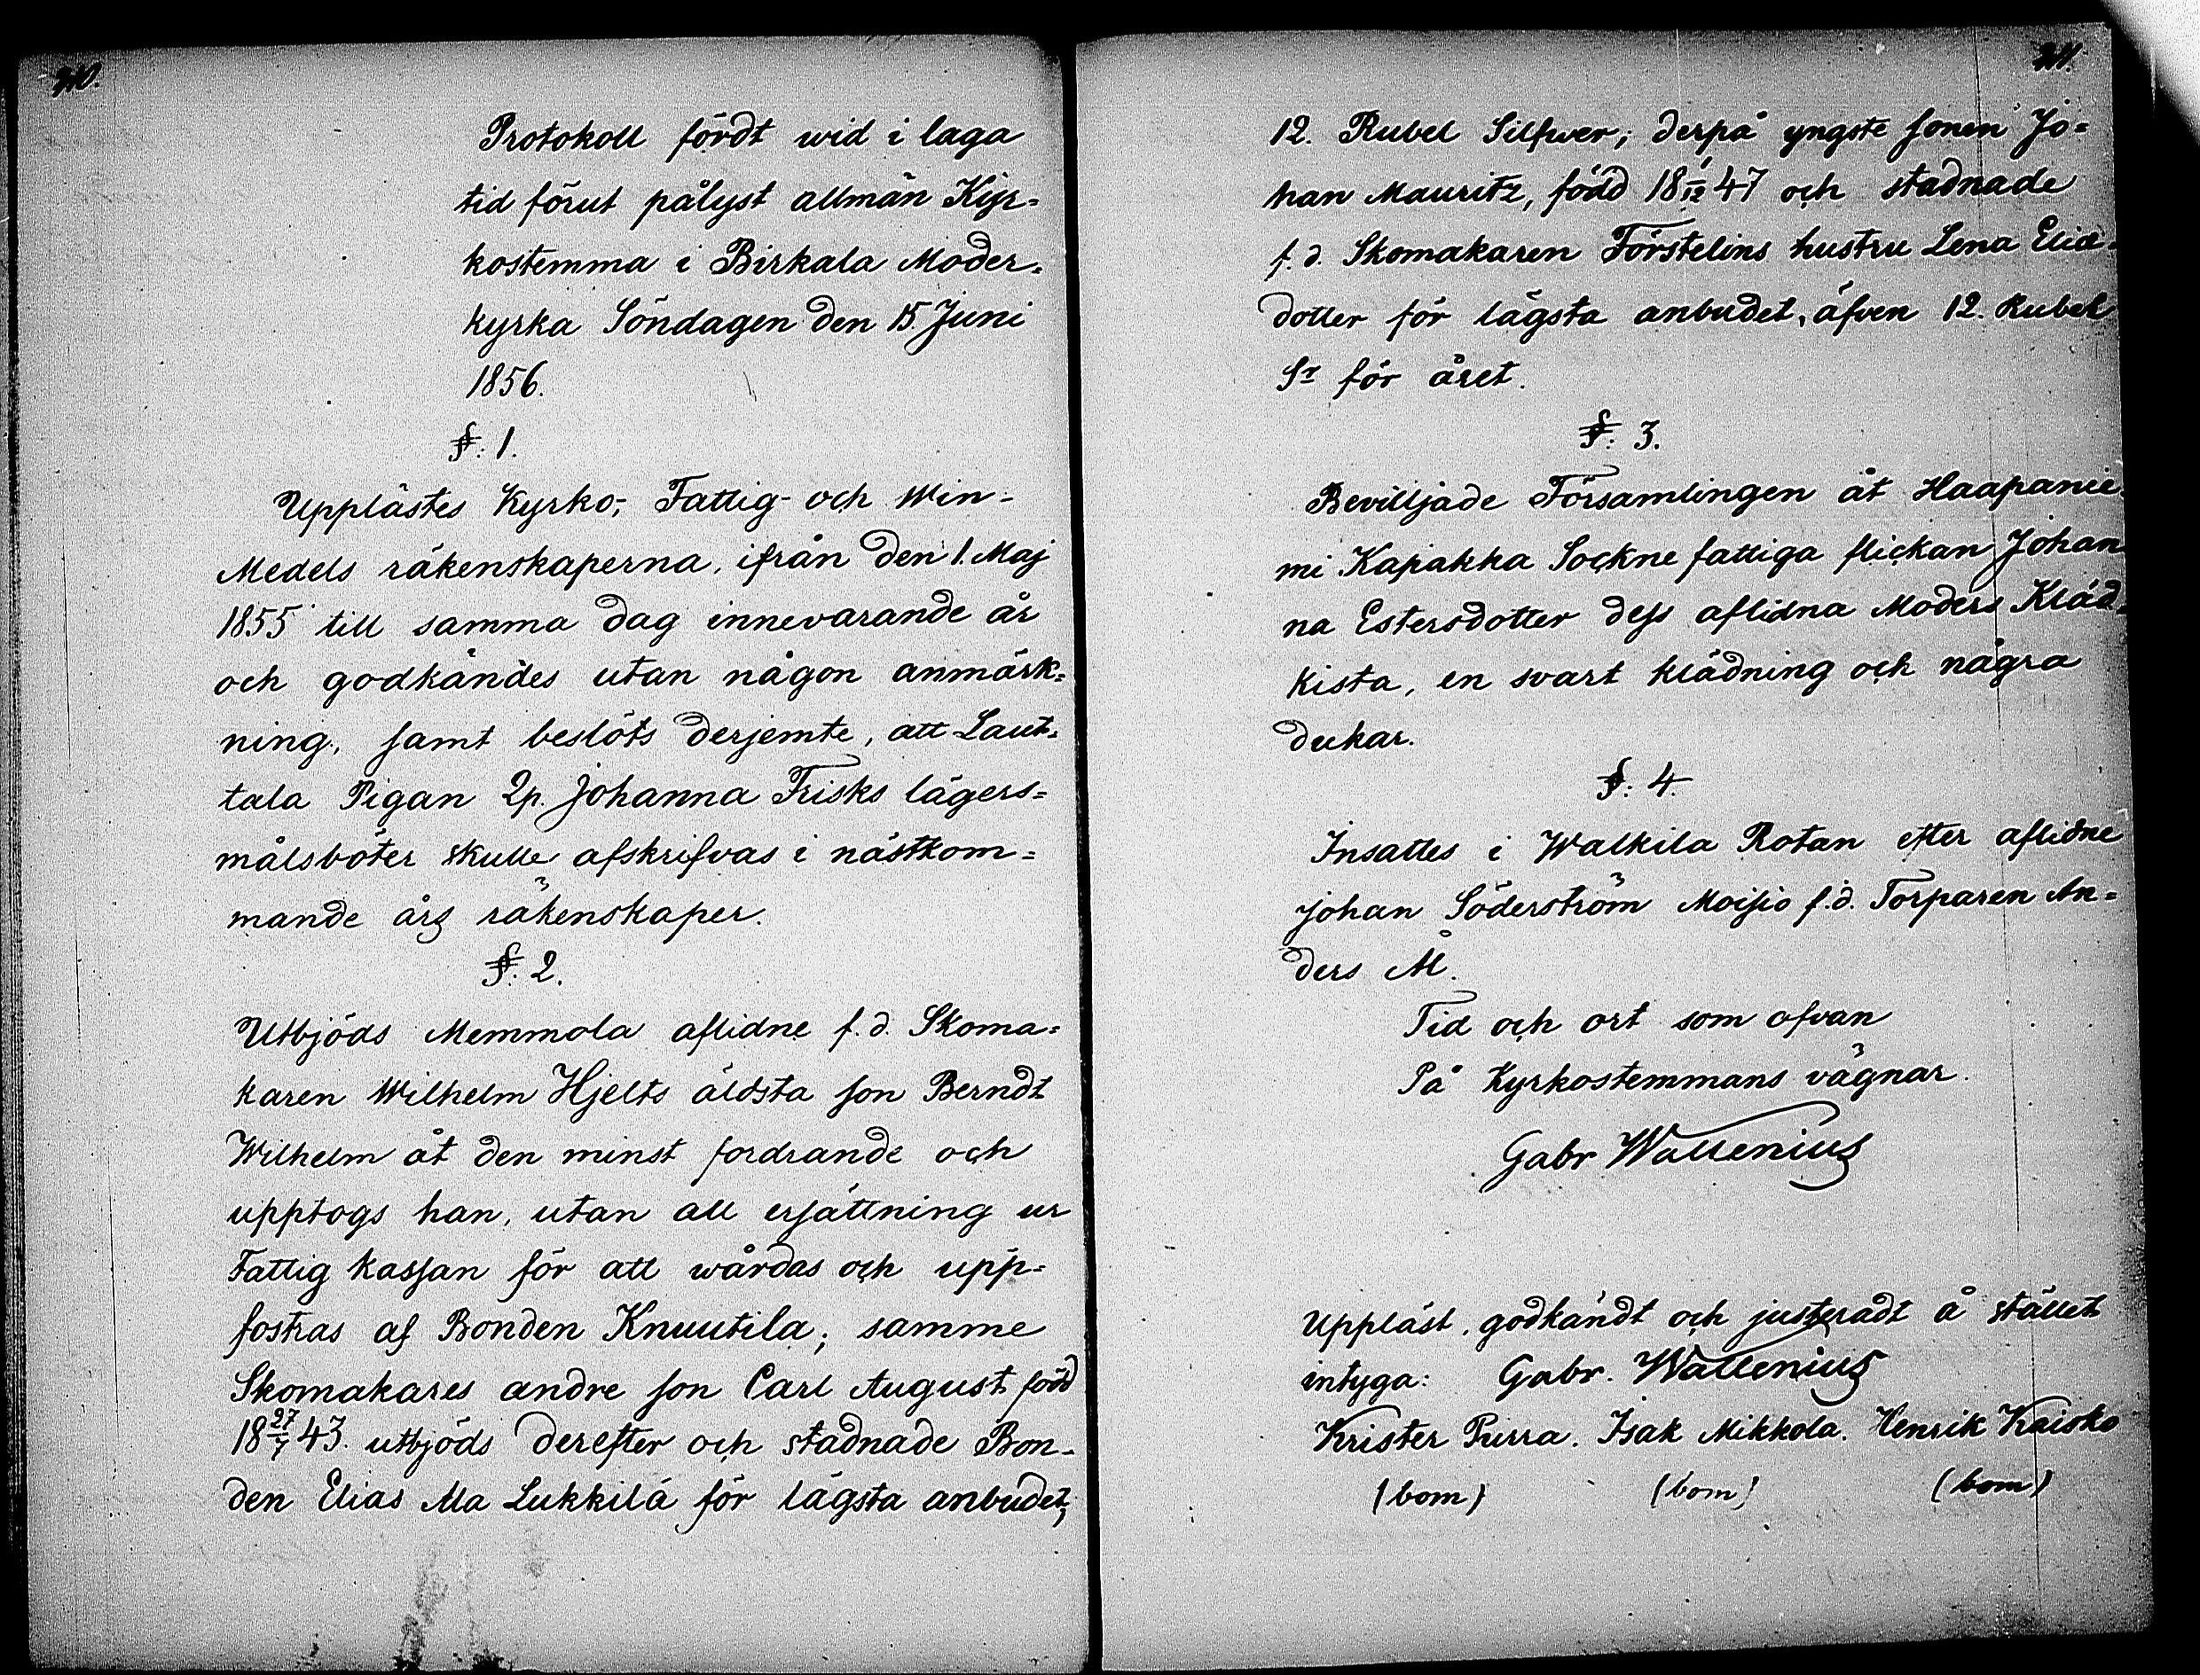 210.
Protokoll fördt wid i laga
tid förut pålyst allmän Kyr-
kostemma i Birkala Moder-
kyrka Söndagen den 15. Juni
1856.
§. 1.
Upplästes Kyrko-, Fattig- och Win-
Medels räkenskaperna, ifrån den 1. Maj
1855 till samma dag innevarande år
och godkändes utan någon anmärk-
ning, samt beslöts derjemte, att Laut-
tala Pigan Qp. Johanna Frisks lägers-
målsböter skulle afskrifvas i nästkom-
mande års räkenskaper.
§. 2.
Utbjöds Memmola aflidne f.d. Skoma-
karen Wilhelm Hjelts äldsta son Berndt
Wilhelm åt den minst fordrande och
upptogs han, utan all ersättning ur
Fattig kassan för att wårdas och upp-
fostras af Bonden Knuutila; samme
Skomakares andre son Carl August född
18 27/7 43. utbjöds derefter och stadnade Bon-
den Elias Ala Lukkilä för lägsta anbudet,
211.
12. Rubel Silfwer; derpå yngste sonen Jo-
han Mauritz, född 18 1/12 47 och stadnade
f.d. Skomakaren Förstelins hustru Lena Elia-
dotter för lägsta anbudet, äfven 12. Rubel
Sr för året.
§. 3.
Bevilljade Församlingen åt Haapanie-
mi Kapakka Sockne fattiga flickan Johan-
na Estersdotter dess aflidna Moders Kläd-
kista, en svart klädning och några
dukar.
§. 4.
Insattes i Walkila Rotan efter aflidne
Johan Söderström Moisio f.d. Torparen An-
ders Ål.
Tid och ort som ofvan
På Kyrkostemmans vägnar.
Gabr Wallenius
Uppläst, godkändt och justeradt å stället
intyga: Gabr. Wallenius
Krister Purra. Isak Mikkola. Henrik Kaisko
(bom) (bom) (bom)